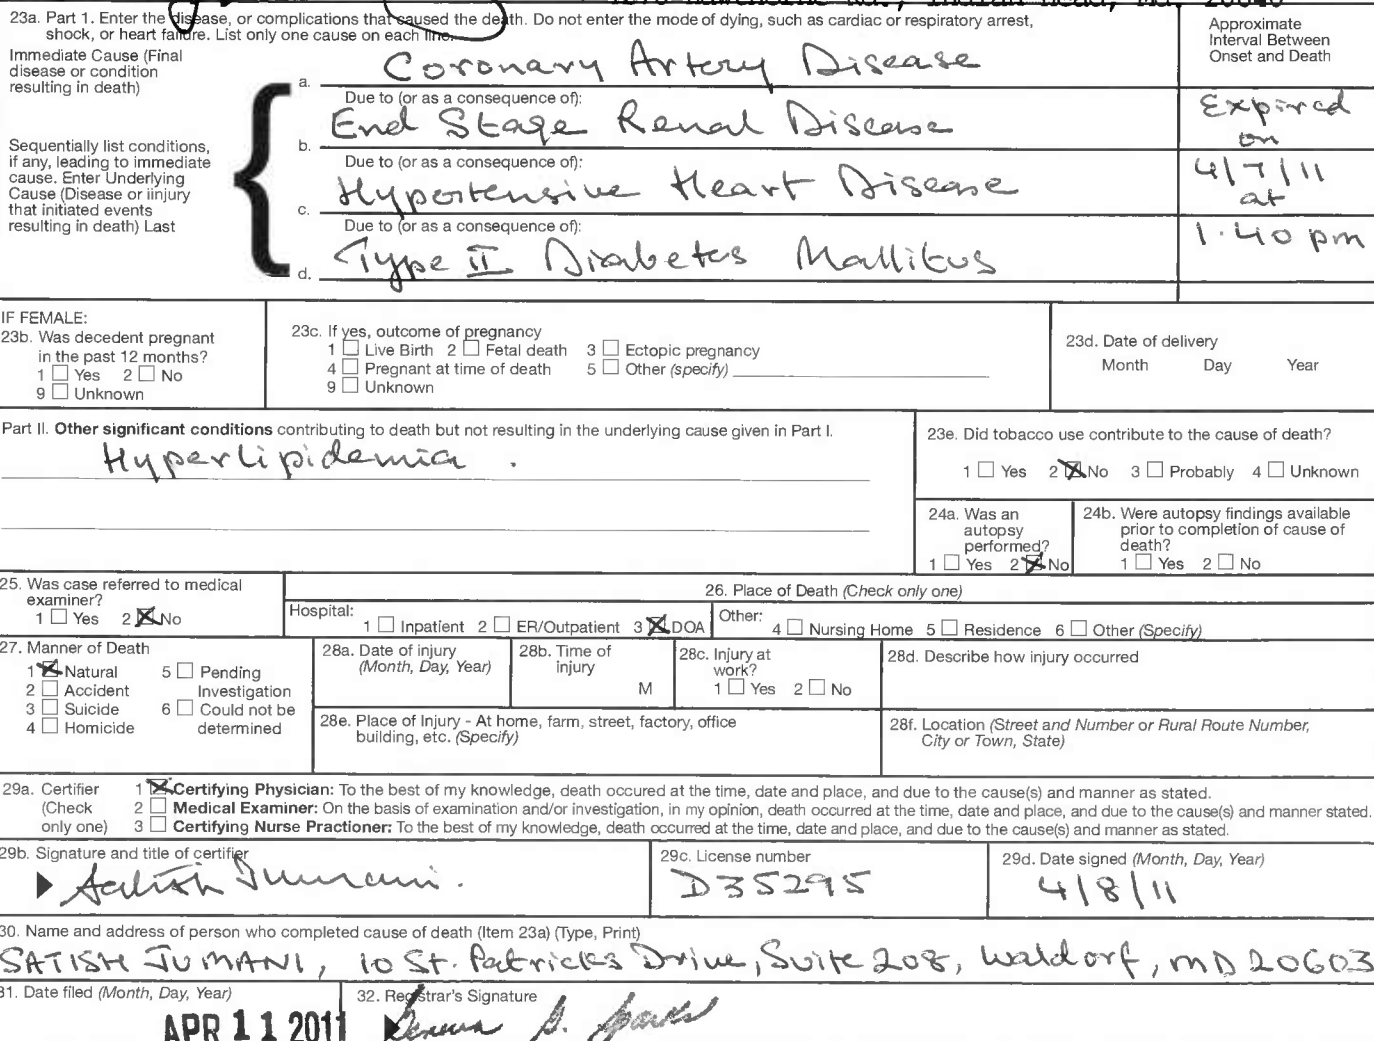 23a. Part 1. Enter the disease, or complications that caused the death. Do not enter the mode of dying, such as cardiac or respiratory arrest,
shock, or heart failure. List only one cause on each line.
Approximate
Interval Between
Onset and Death
Immediate Cause (Final
disease or condition
resulting in death)
a. Coronary Artery Disease
Due to (or as a consequence of):
b. End Stage Renal Disease
Expired
on
Sequentially list conditions,
if any, leading to immediate
cause. Enter Underlying
Cause (Disease or iinjury
that initiated events
resulting in death) Last
Due to (or as a consequence of):
c. Hypertensive Heart Disease
4/7/11
at
Due to (or as a consequence of):
d. Type II Diabetes Mallitus
1.40 pm
IF FEMALE:
23b. Was decedent pregnant
in the past 12 months?
1 Yes 2 No
9 Unknown
23c. If yes, outcome of pregnancy
1 Live Birth 2 Fetal death 3 Ectopic pregnancy
4 Pregnant at time of death 5 Other (specify)
9 Unknown
23d. Date of delivery
Month Day Year
Part II. Other significant conditions contributing to death but not resulting in the underlying cause given in Part I.
Hyperlipidemia .
23e. Did tobacco use contribute to the cause of death?
1 Yes 2 No 3 Probably 4 Unknown
24a. Was an
autopsy
performed?
1 Yes 2 No
24b. Were autopsy findings available
prior to completion of cause of
death?
1 Yes 2 No
25. Was case referred to medical
examiner?
1 Yes 2 No
26. Place of Death (Check only one)
Hospital:
1 Inpatient 2 ER/Outpatient 3 DOA
Other:
4 Nursing Home 5 Residence 6 Other (Specify)
27. Manner of Death
1 Natural 5 Pending
2 Accident Investigation
3 Suicide 6 Could not be
4 Homicide determined
28a. Date of injury
(Month, Day, Year)
28b. Time of
injury
M
28c. Injury at
work?
1 Yes 2 No
28d. Describe how injury occurred
28e. Place of Injury - At home, farm, street, factory, office
building, etc. (Specify)
28f. Location (Street and Number or Rural Route Number,
City or Town, State)
29a. Certifier
(Check
only one)
1 Certifying Physician: To the best of my knowledge, death occured at the time, date and place, and due to the cause(s) and manner as stated.
2 Medical Examiner: On the basis of examination and/or investigation, in my opinion, death occurred at the time, date and place, and due to the cause(s) and manner stated.
3 Certifying Nurse Practioner: To the best of my knowledge, death occurred at the time, date and place, and due to the cause(s) and manner as stated.
29b. Signature and title of certifier
Satish Jumani.
29c. License number
D35295
29d. Date signed (Month, Day, Year)
4/8/11
30. Name and address of person who completed cause of death (Item 23a) (Type, Print)
SATISH JUMANI, 10 St. Patricks Drive, Suite 208, Waldorf, MD 20603
31. Date filed (Month, Day, Year)
APR 11 2011
32. Registrar's Signature